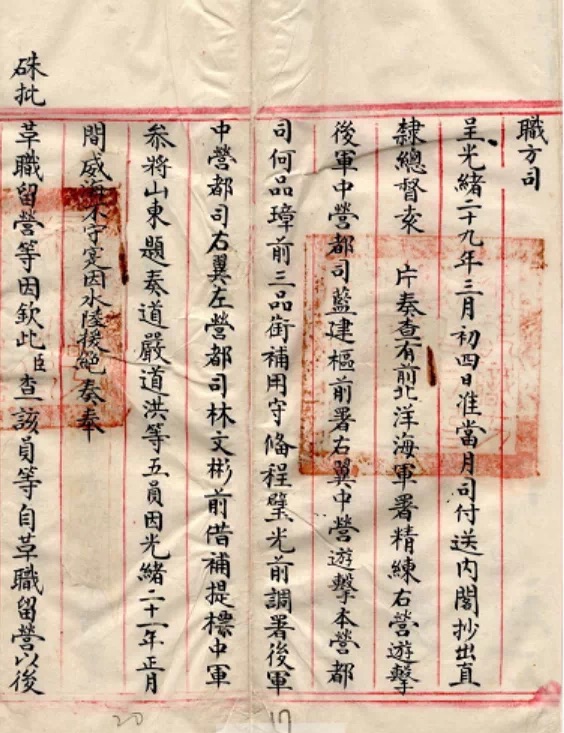 職方司
呈光緒二十九年三月初四日准當月司付送內閣抄出直
隸總督袁 片奏查有前北洋海軍署精練右營遊擊
後軍中營都司藍建樞前署右翼中營遊擊本營都
司何品璋前三品銜補用守備程璧光前調署後軍
中營都司右翼左營都司林文彬前借補提標中軍
參將山東題奏道嚴道洪等五員因光緒二十一年正月
間威海不守寔因水陸援絕奏奉
硃批
革職留營等因欽此臣查該員等自革職留營以後
20
17